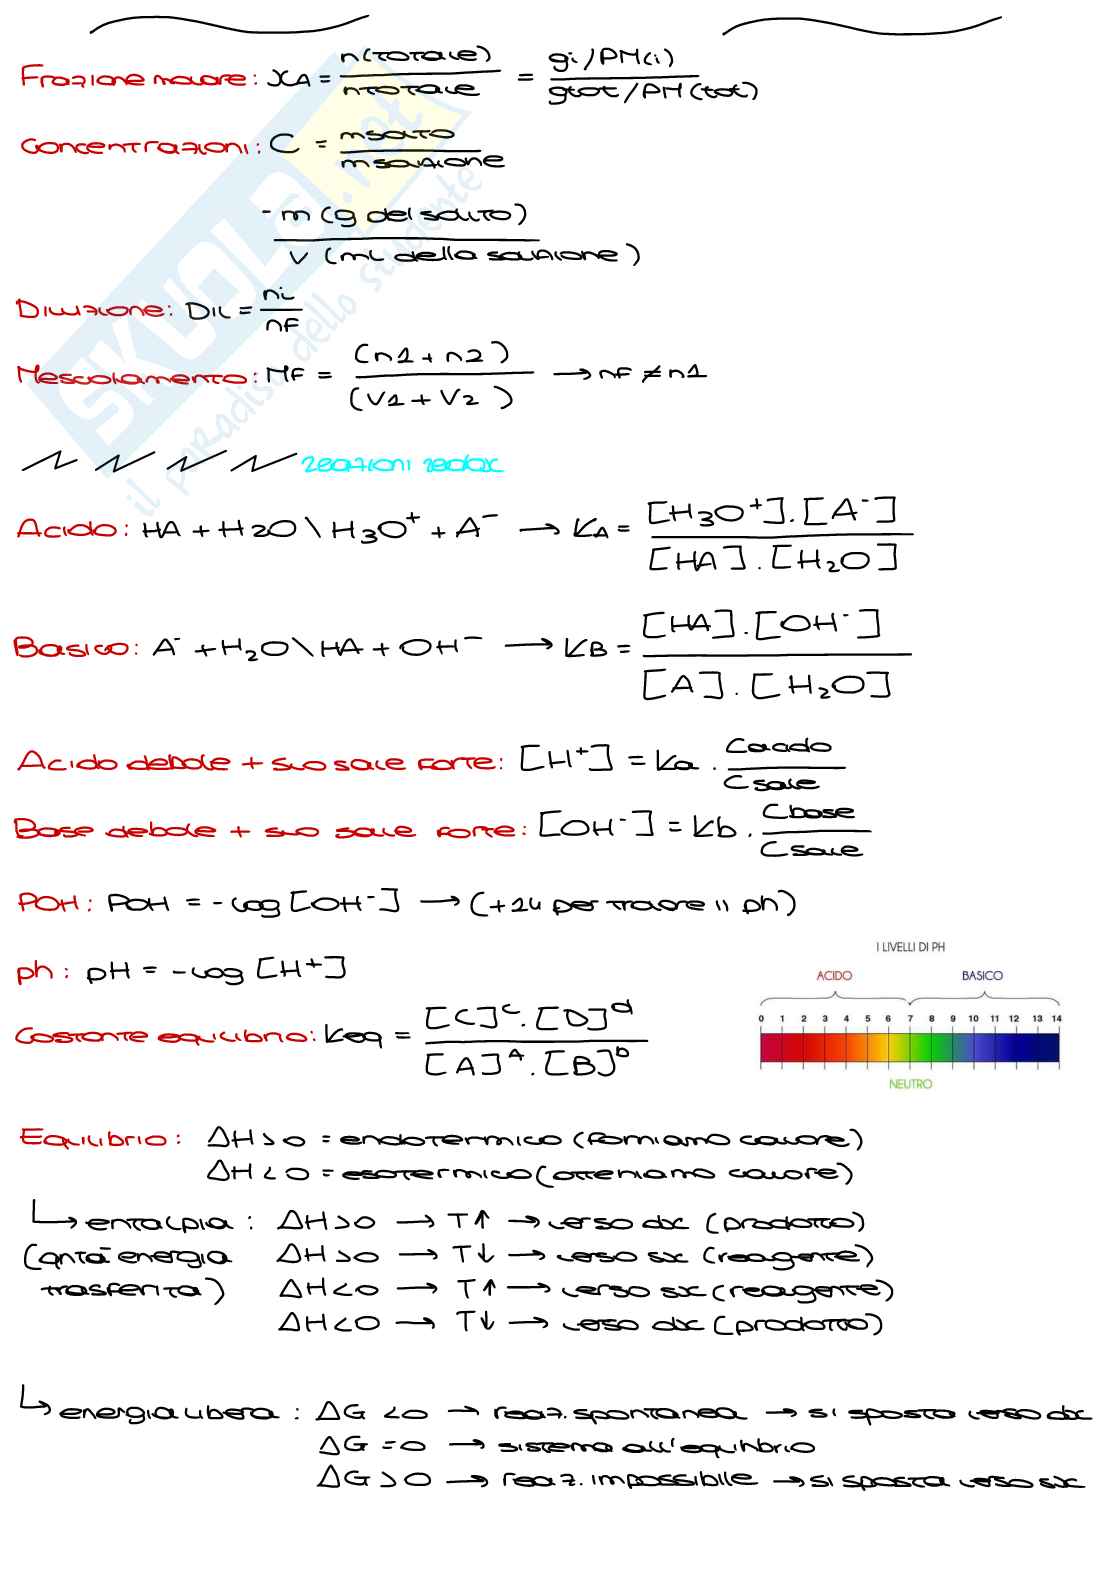 Frazione molare: XA = n(TOTALE) / nTOTALE = gi/PM(i) / gtot/PM(tot)
Concentrazioni: C = msoluto / msoluzione
- m (g del soluto) / V (ml della soluzione)
Diluizione: DIL = ni / nF
Mescolamento: MF = (n1 + n2) / (V1 + V2) → nF ≠ n1
reazioni redox
Acido: HA + H2O \ H3O⁺ + A⁻ → KA = [H3O⁺].[A⁻] / [HA].[H2O]
Basico: A⁻ + H2O \ HA + OH⁻ → KB = [HA].[OH⁻] / [A].[H2O]
Acido debole + suo sale forte: [H⁺] = Ka . Cacido / Csale
Base debole + suo sale forte: [OH⁻] = Kb . Cbase / Csale
POH: POH = -log [OH⁻] → (+14 per trovare il ph)
ph: pH = -log [H⁺]
I LIVELLI DI PH
ACIDO BASICO
0 1 2 3 4 5 6 7 8 9 10 11 12 13 14
NEUTRO
Costante equilibrio: Keq = [C]ᶜ.[D]ᵈ / [A]ᴬ.[B]ᵇ
Equilibrio: ΔH > 0 = endotermico (forniamo calore)
ΔH < 0 = esotermico (otteniamo calore)
↳ entalpia: ΔH > 0 → T↑ → verso dx (prodotto)
(qntà energia ΔH > 0 → T↓ → verso sx (reagente)
trasferita) ΔH < 0 → T↑ → verso sx (reagente)
ΔH < 0 → T↓ → verso dx (prodotto)
↳ energia libera: ΔG < 0 → reaz. spontanea → si sposta verso dx
ΔG = 0 → sistema all'equilibrio
ΔG > 0 → reaz. impossibile → si sposta verso sx
SKUOLA.net
il paradiso dello studente